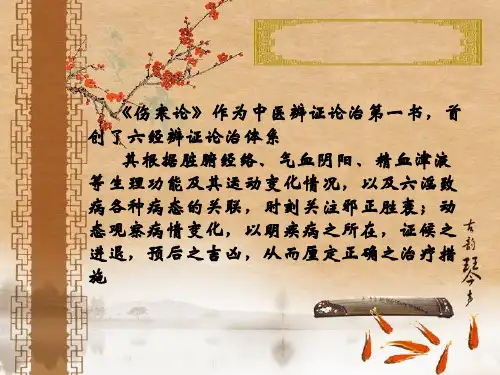 《伤寒论》作为中医辨证论治第一书，首
创了六经辨证论治体系
其根据脏腑经络、气血阴阳、精血津液
等生理功能及其运动变化情况，以及六淫致
病各种病态的关联，时刻关注邪正胜衰；动
态观察病情变化，以明疾病之所在，证候之
进退，预后之吉凶，从而厘定正确之治疗措
施
古韵琴声